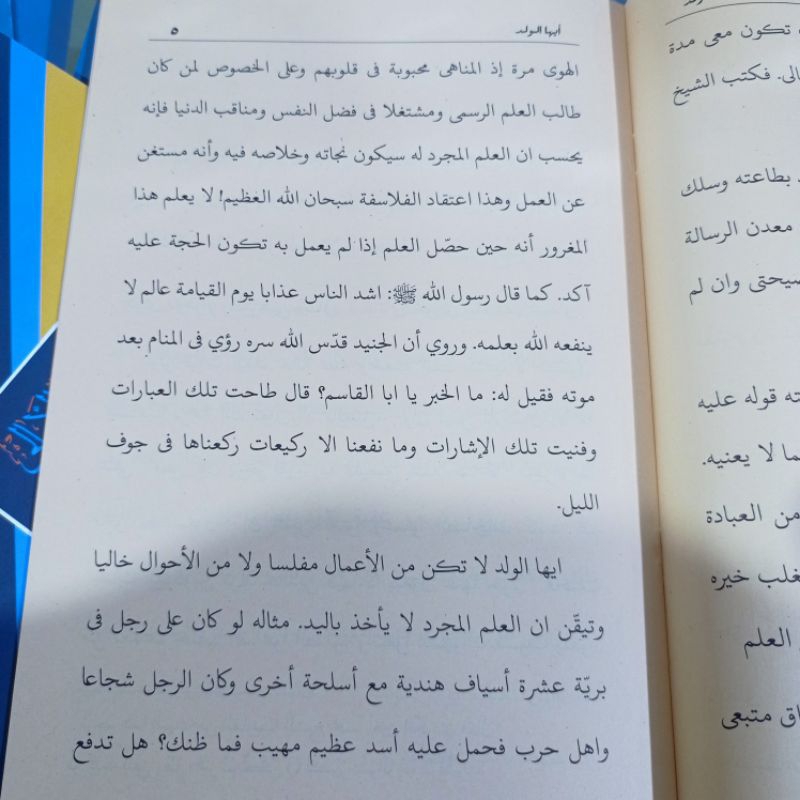 أيها الولد ٥
الهوى مرة إذ المناهى محبوبة فى قلوبهم وعلى الخصوص لمن كان
طالب العلم الرسمى ومشتغلا فى فضل النفس ومناقب الدنيا فإنه
يحسب ان العلم المجرد له سيكون نجاته وخلاصه فيه وأنه مستغن
عن العمل وهذا اعتقاد الفلاسفة سبحان الله العظيم! لا يعلم هذا
المغرور أنه حين حصّل العلم إذا لم يعمل به تكون الحجة عليه
آكد. كما قال رسول الله ﷺ: اشد الناس عذابا يوم القيامة عالم لا
ينفعه الله بعلمه. وروي أن الجنيد قدّس الله سره رؤي فى المنام بعد
موته فقيل له: ما الخبر يا ابا القاسم؟ قال طاحت تلك العبارات
وفنيت تلك الإشارات وما نفعنا الا ركيعات ركعناها فى جوف
الليل.
ايها الولد لا تكن من الأعمال مفلسا ولا من الأحوال خاليا
وتيقّن ان العلم المجرد لا يأخذ باليد. مثاله لو كان على رجل فى
بريّة عشرة أسياف هندية مع أسلحة أخرى وكان الرجل شجاعا
واهل حرب فحمل عليه أسد عظيم مهيب فما ظنك؟ هل تدفع
تكون معى مدة
فكتب الشيخ
بطاعته وسلك
معدن الرسالة
وان لم
قوله عليه
لا يعنيه.
من العبادة
خيره
العلم
متبعى